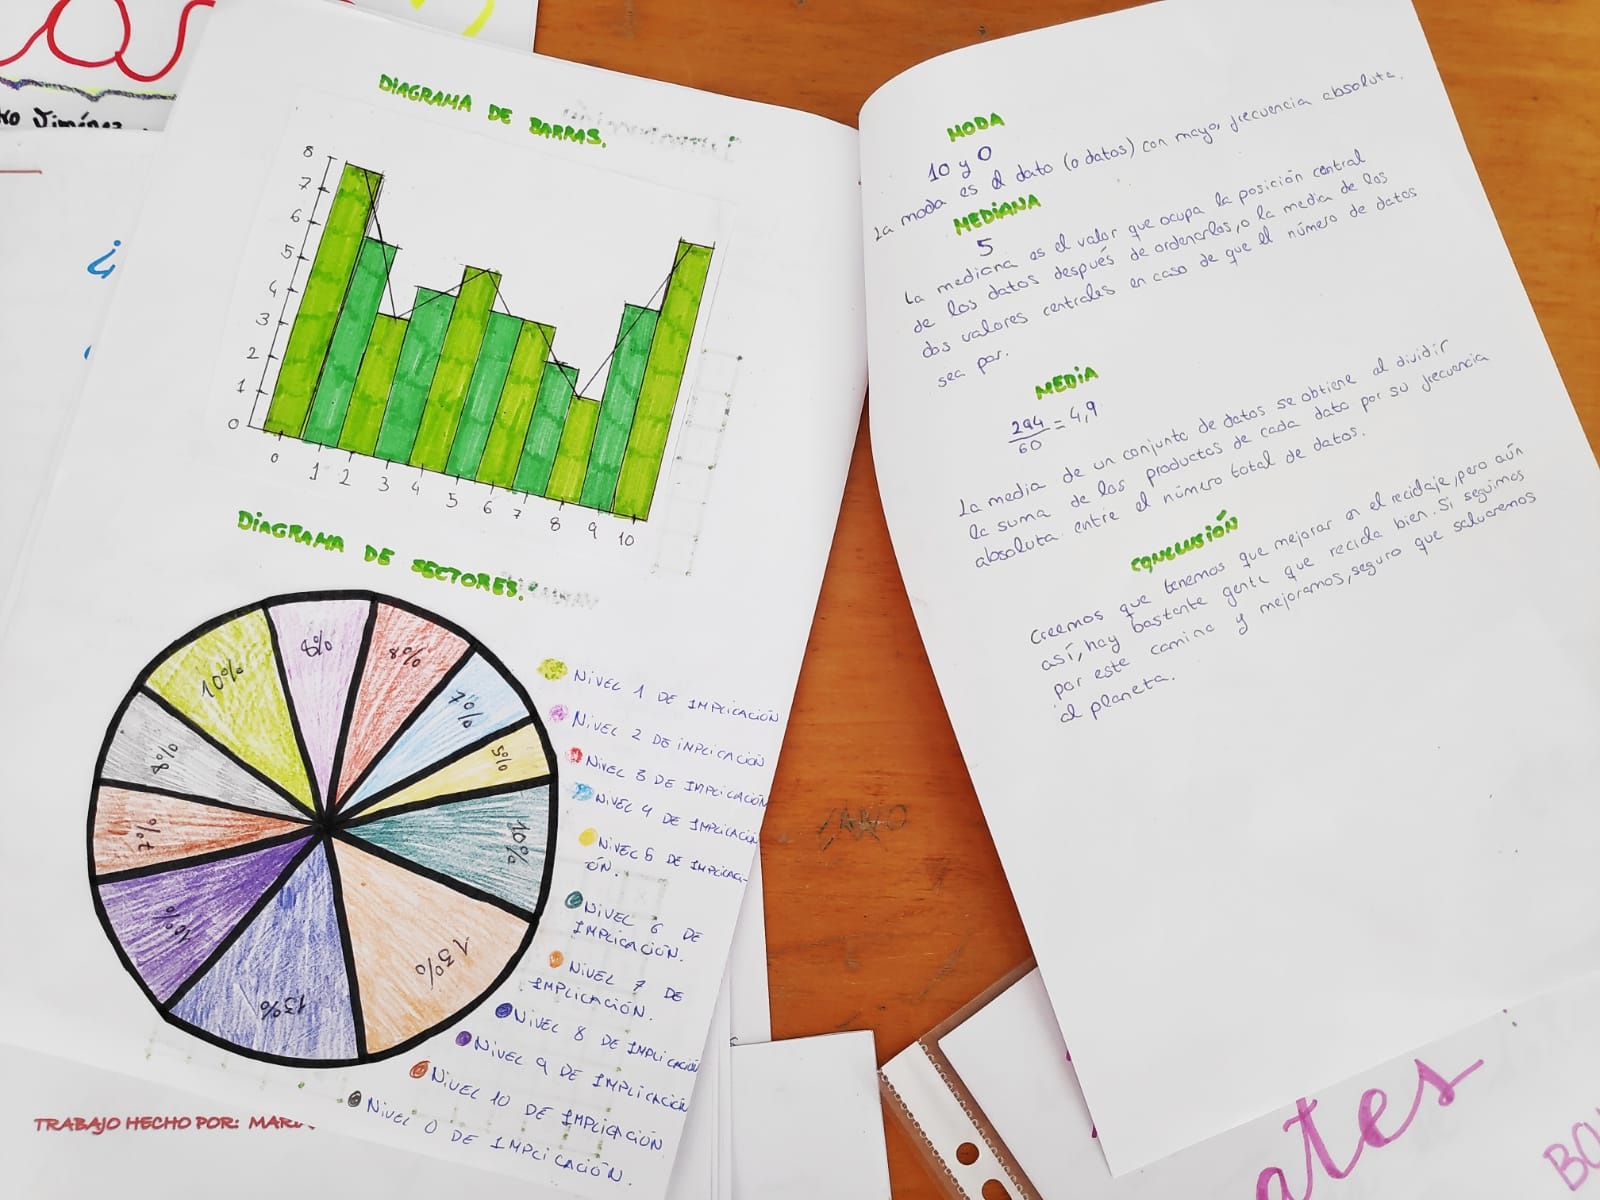 DIAGRAMA DE BARRAS.
8
7
6
5
4
3
2
1
0
0 1 2 3 4 5 6 7 8 9 10
DIAGRAMA DE SECTORES.
10%
8%
8%
7%
5%
10%
13%
13%
10%
7%
8%
NIVEL 1 DE IMPLICACIÓN
NIVEL 2 DE IMPLICACIÓN
NIVEL 3 DE IMPLICACIÓN
NIVEL 4 DE IMPLICACIÓN
NIVEL 5 DE IMPLICACI-
ÓN.
NIVEL 6 DE
IMPLICACIÓN.
NIVEL 7 DE
IMPLICACIÓN.
NIVEL 8 DE IMPLICACIÓN
NIVEL 9 DE IMPLICACIÓN
NIVEL 10 DE IMPLICACIÓN
NIVEL 0 DE IMPLICACIÓN.
TRABAJO HECHO POR: MARI
MODA
10 y 0
La moda es el dato (o datos) con mayor frecuencia absoluta.
MEDIANA
5
La mediana es el valor que ocupa la posición central
de los datos después de ordenarlos, o la media de los
dos valores centrales en caso de que el número de datos
sea par.
MEDIA
294/60 = 4,9
La media de un conjunto de datos se obtiene al dividir
la suma de los productos de cada dato por su frecuencia
absoluta entre el número total de datos.
CONCLUSIÓN
Creemos que tenemos que mejorar en el reciclaje, pero aún
así, hay bastante gente que recicla bien. Si seguimos
por este camino y mejoramos, seguro que salvaremos
al planeta.
Jiménez
ates
BO